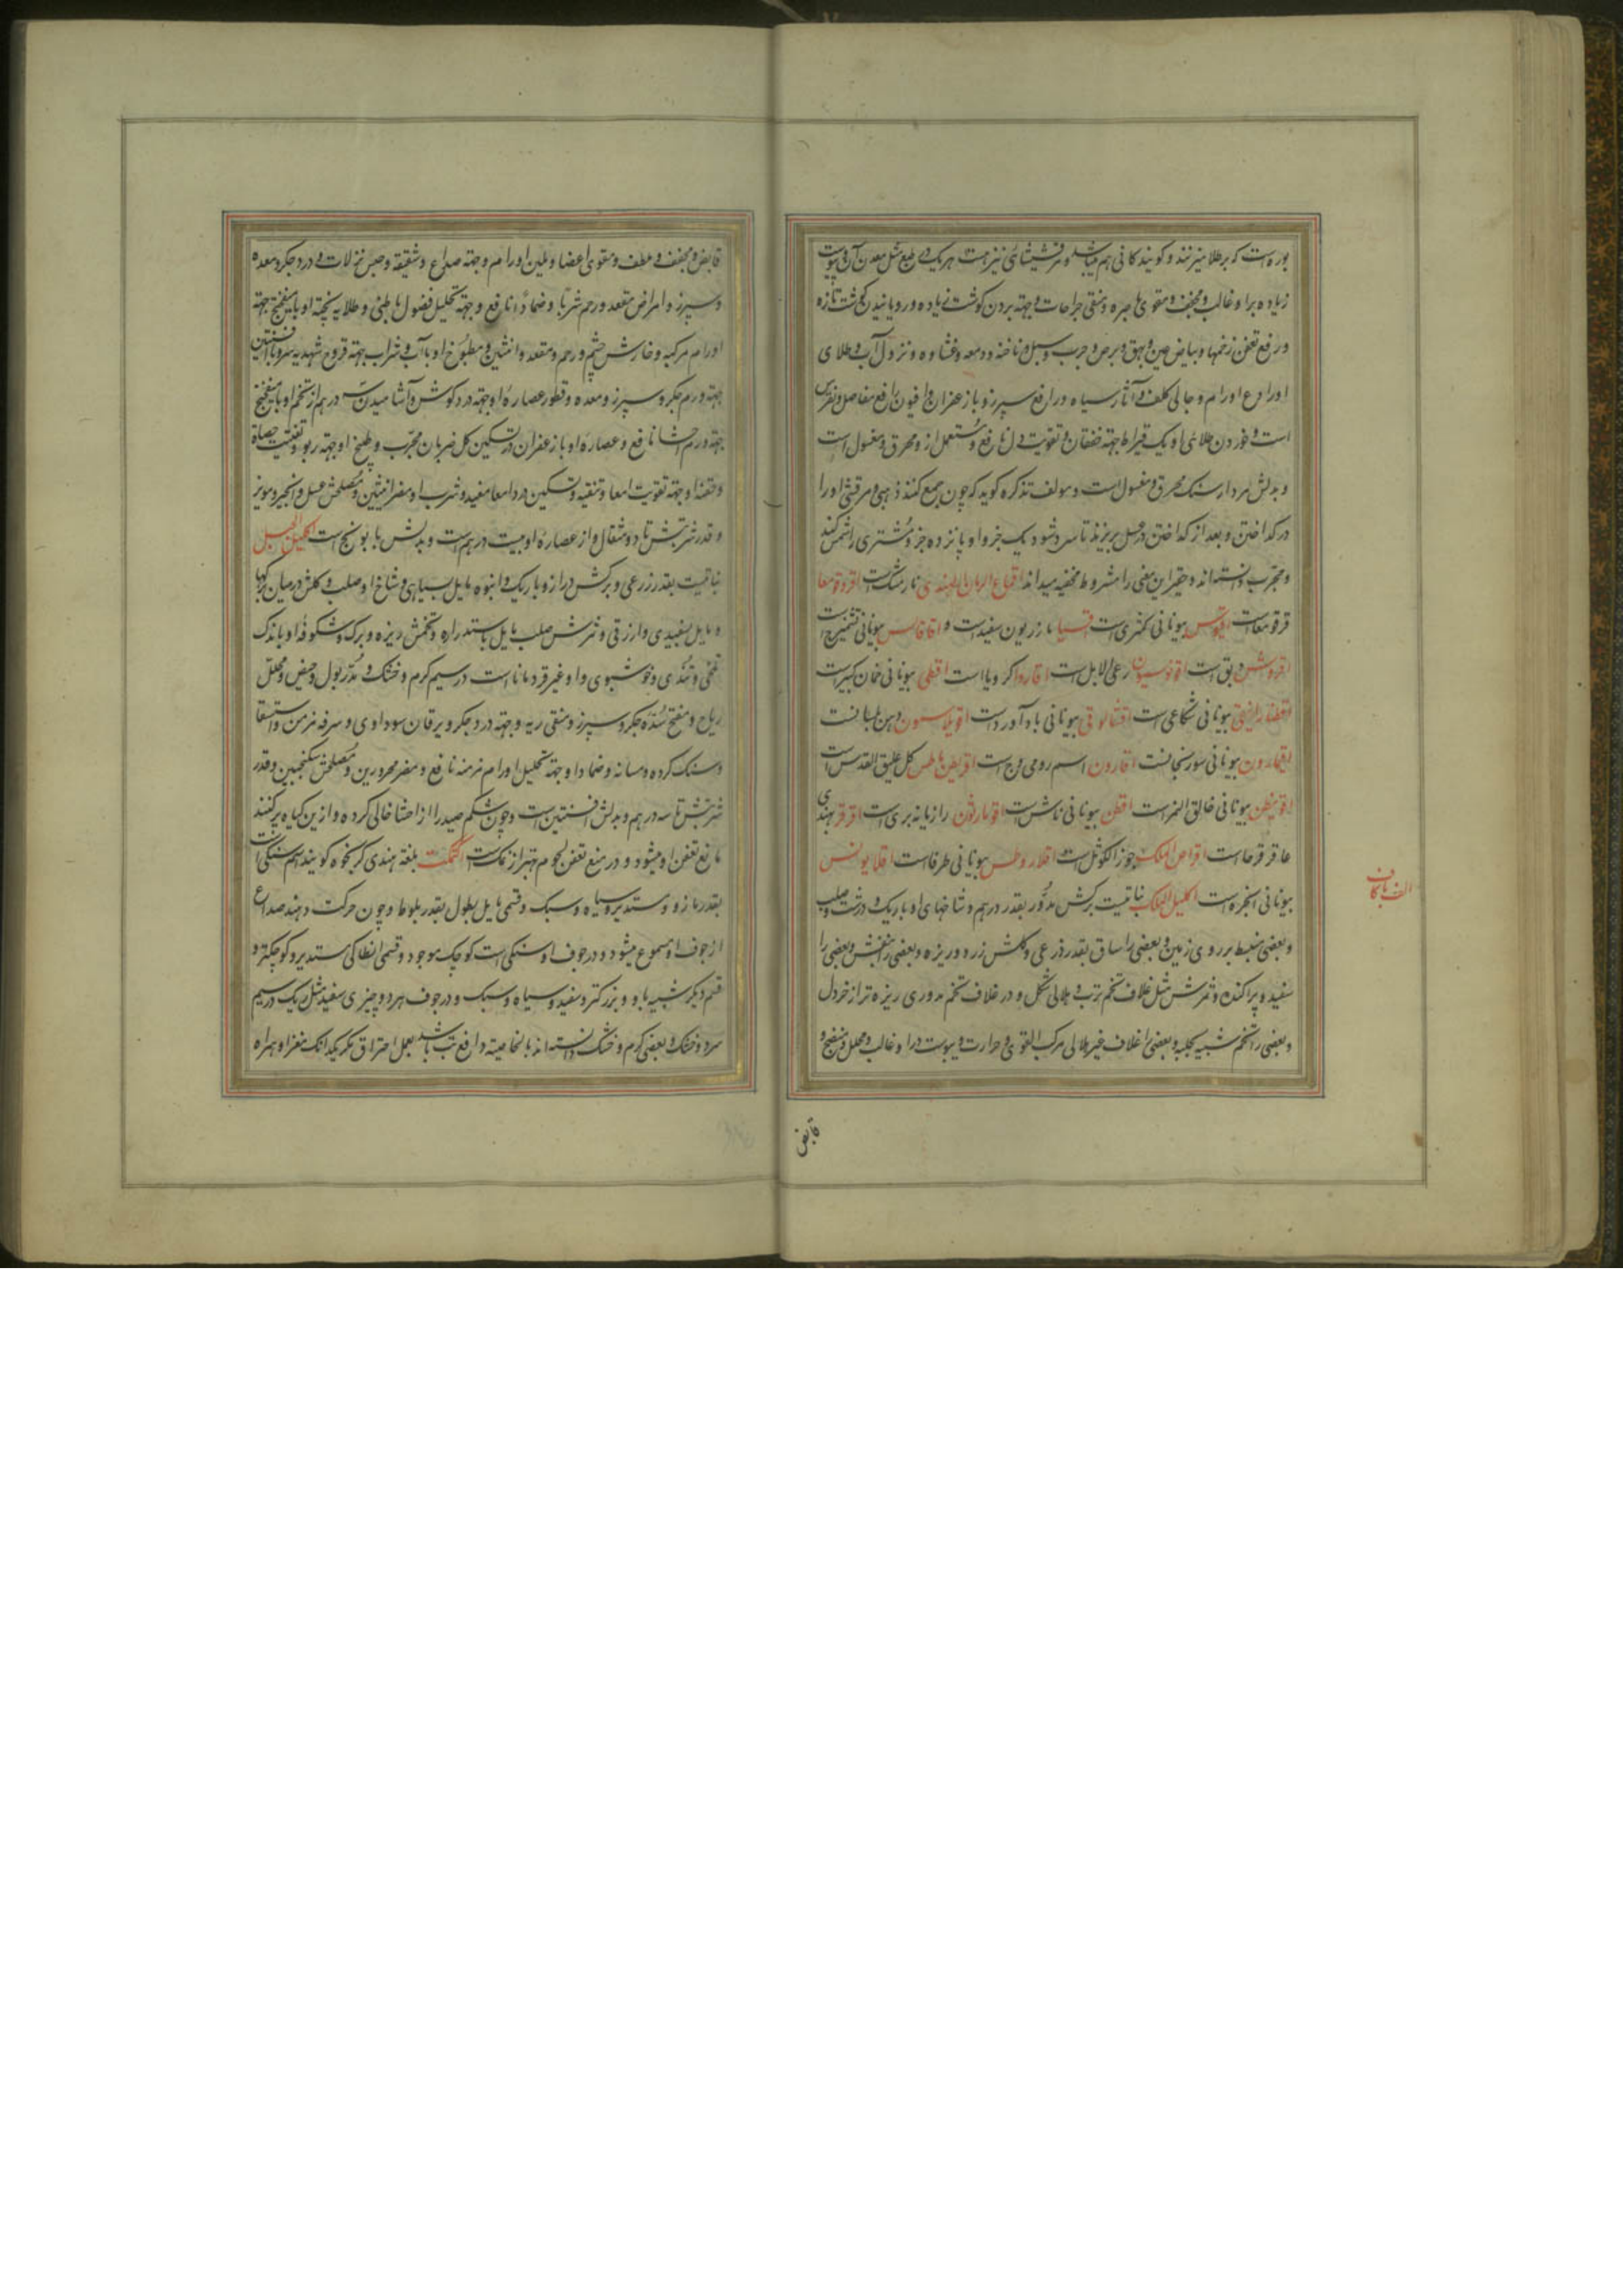 بوره است که بر طلا میریزند و گویند کانی هم میباشد و مرقشیشائی نیز هست هر یک در طبع مثل معدن آن و یبوست
زیاده بر او غالب و مجفف و مقوی باصره و منقی جراحات و جهته بردن گوشت زیاده و رویانیدن گوشت تازه
و رفع تعفن زخمها و بیاض عین و بهق و برص و جرب و سبل و ناخنه و دمعه و غشاوه و نزول آب و طلای
او رادع اورام و جالی کلف و آثار سیاه و رافع سپرز و با زعفران و افیون رافع مفاصل و نقرس
است و خوردن طلائی او یک قیراط جهته خفقان و تقویت دل نافع و مستعمل ازو محرق و مغسول است
و بدلش مردارسنک محرق و مغسول است و مولف تذکره گوید که چون جمع کنند ذهبی و مرقشی او را
در گداختن و بعد از گداختن در عسل بریزند تا سرد شود یک جزو او پانزده جزو مشتری را شمس کند
و مجرب دانسته اند و حقیر این معنی را مشروط بخفیه میداند اقماع الرمان الهندی نارمشک است اقروقومعا
قرقومعاست اقیوس بیونانی کمثری است اقسیا مازریون سفید است و اقاقالس بیونانی تشمیزج است
اقروش دبق است اقونوسیون رعی الابل است اقاروا کرویا است اقطی بیونانی خمان کبیر است
بیونانی شکاعی است بیونانی بادآورد است دهن بلسانست
اقیمارون بیونانی سورنجانست اقارون اسم رومی وج است کل علیق القدس است
بیونانی خالق النمر است اقطن بیونانی ماش است اقومارثون رازیانه بری است اقرقر بهندی
عاقرقرحاست اقراص الملک جوز الکوثل است بیونانی طرفاست
بیونانی انجره است اکلیل الملک نباتیست برگش مدور بقدر درهم و شاخهای او باریک و درشت و صلب
و بعضی منبسط بر روی زمین و بعضی را ساق بقدر ذرعی و گلش زرد و ریزه و بعضی را بنفش و بعضی را
سفید و پراکنده و ثمرش مثل غلاف تخم ترب و هلالی شکل و در غلاف تخم مدوری ریزه تر از خردل
و بعضی را تخم شبیه بحلبه و بعضی را غلاف غیر هلالی مرکب القوی و حرارت و یبوست درو غالب و محلل و منضج و
الف با کاف
قابض
قابض و مجفف و ملطف و مقوی اعضا و ملین اورام و جهته صداع و شقیقه و حبس نزلات و درد جگر و معده
و سپرز و امراض مقعد و رحم شربا و ضمادا نافع و جهته تحلیل فضول باطنی و طلاء پخته او با میفختج جهته
اورام مرکبه و خارش چشم و رحم و مقعد و انثیین و مطبوخ او با آب و شراب جهته قروح شهدیه سر و با افسنتین
جهته ورم جگر و سپرز و معده و قطور عصاره او جهته درد گوش و آشامیدن سه درهم از تخم او با میفختج
جهته ورم احشا نافع و عصاره او با زعفران در تسکین کل ضربان مجرب و طبیخ او جهته ربو و تفتیت حصاة
و حقنه او جهته تقویت امعا و تنقیه و تسکین درد امعا مفید و شرب او مضر انثیین و مصلحش عسل و انجیر و مویز
و قدر شربتش تا دو مثقال و از عصاره او بیست درهم است و بدلش بابونج است اکلیل الجبل
نباتیست بقدر زرعی و برگش دراز و باریک و انبوه مایل بسیاهی و شاخ او صلب و گلش در میان برگها
و مایل بسفیدی و ازرقی و ثمرش صلب مایل باستداره و تخمش ریزه و برگ و شکوفه او با اندک
تلخی و تندی و خوشبوی و او غیر قردماناست در سیم گرم و خشک و مدر بول و حیض و محلل
ریاح و مفتح سده جگر و سپرز و منقی ریه و جهته درد جگر و یرقان سوداوی و سرفه مزمن و استسقا
و سنک گرده و مسانه و ضماد او جهته تحلیل اورام مزمنه نافع و مضر محرورین و مصلحش سکنجبین و قدر
شربتش تا سه درهم و بدلش افسنتین است و چون شکم صید را از احشا خالی کرده و ازین گیاه پر کنند
مانع تعفن او میشود و در منع تعفن لحوم بهتر از نمکست اکتمکت بلغة هندی کرنجوه گویند اسم سنگی است
بقدر مازو و مستدیر و سیاه و سبک و قسمی مایل بطول بقدر بلوط و چون حرکت دهند صداع
از جوف او مسموع میشود و در جوف او سنگی است کوچک موجود و قسمی انطاکی مستدیر و کوچکتر و
قسم دیگر شبیه باو و بزرگتر و سفید و سیاه و سبک و در جوف هر دو چیزی سفید مثل ریک در سیم
سرد و خشک و بعضی گرم و خشک دانسته اند بالخاصیه رافع تب باشد بعمل احتراق مکرر یکدانک مغز او همراه